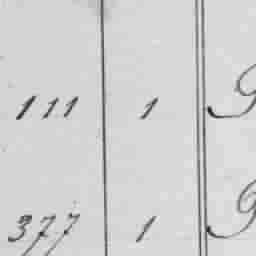 111 1
377 1